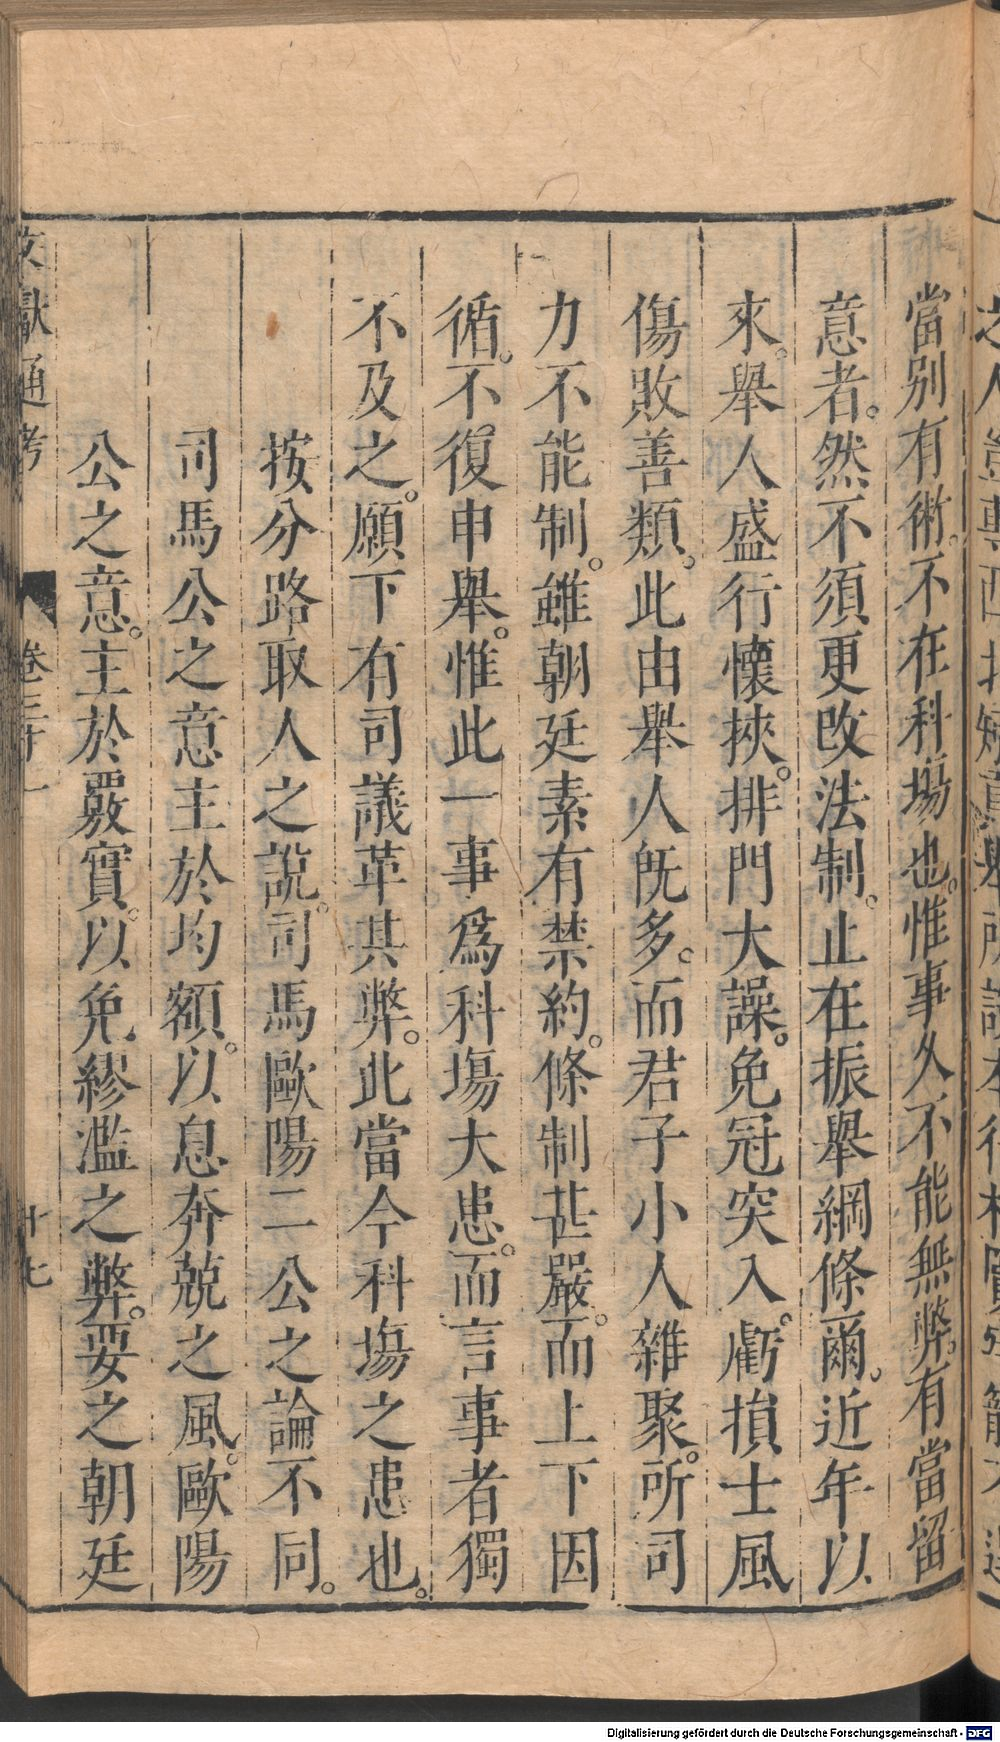 當别有術。不在科塲也。惟事久不能無弊。有當留
意者。然不須更改法制。止在振舉綱條爾。近年以
來。舉人盛行懷挾。排門大譟。免冠突入。虧損士風
傷敗善類。此由舉人旣多。而君子小人雜聚。所司
力不能制。雖朝廷素有禁約。條制甚嚴。而上下因
循。不復申舉。惟此一事爲科塲大患。而言事者獨
不及之。願下有司議革其弊。此當今科塲之患也。
按分路取人之說。司馬歐陽二公之論不同。
司馬公之意主於均額。以息奔競之風。歐陽
公之意。主於覈實。以免繆濫之弊。要之朝廷
文獻通考 卷三十一 十七
Digitalisierung gefördert durch die Deutsche Forschungsgemeinschaft - DFG